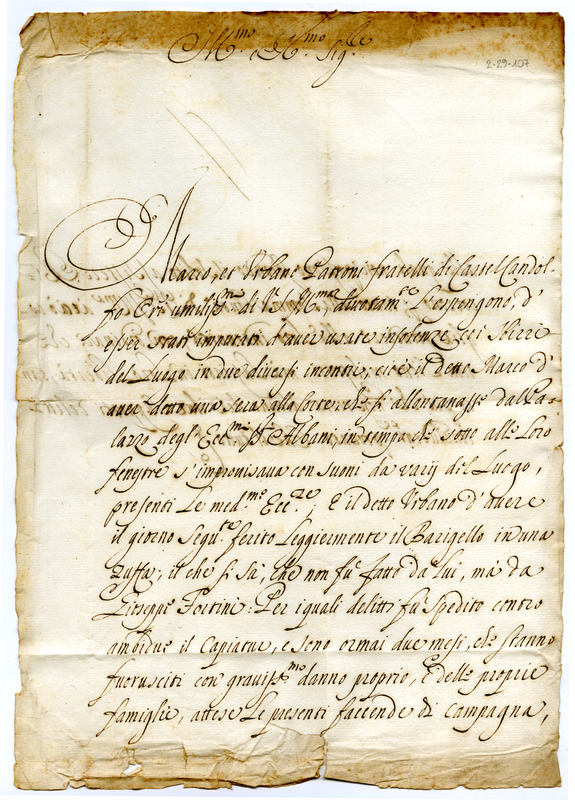 Ill.mo e R.mo Sig.re
2-29-107
Marco, et Urbano Patroni fratelli di Castel Gandol-
fo Or.i umiliss.mi di V.S. Ill.ma devotam.te L'espongono, d'
esser stati imputati d'aver usate insolenze coi Sbirri
del Luogo in due diversi incontri, cioè il detto Marco d'
aver detto una sera alla Corte, che si allontanasse dal Pa-
lazzo degl' Ecc.mi SS.ri Albani, in tempo che sotto alle Loro
fenestre s'improvisava con suoni da varij del Luogo,
presenti Le med.me Ecc.ze; E il detto Urbano d'avere
il giorno Segu.te ferito Leggiermente il Barigello in una
zuffa; il che si sà, che non fù fatto da lui, mà da
Giuseppe Fortini: Per iguali delitti fù spedito contro
ambidue il Capiatur, e sono ormai due mesi, che stanno
fuorusciti con graviss.mo danno proprio, e delle proprie
famiglie, attese Le presenti faccende di Campagna,